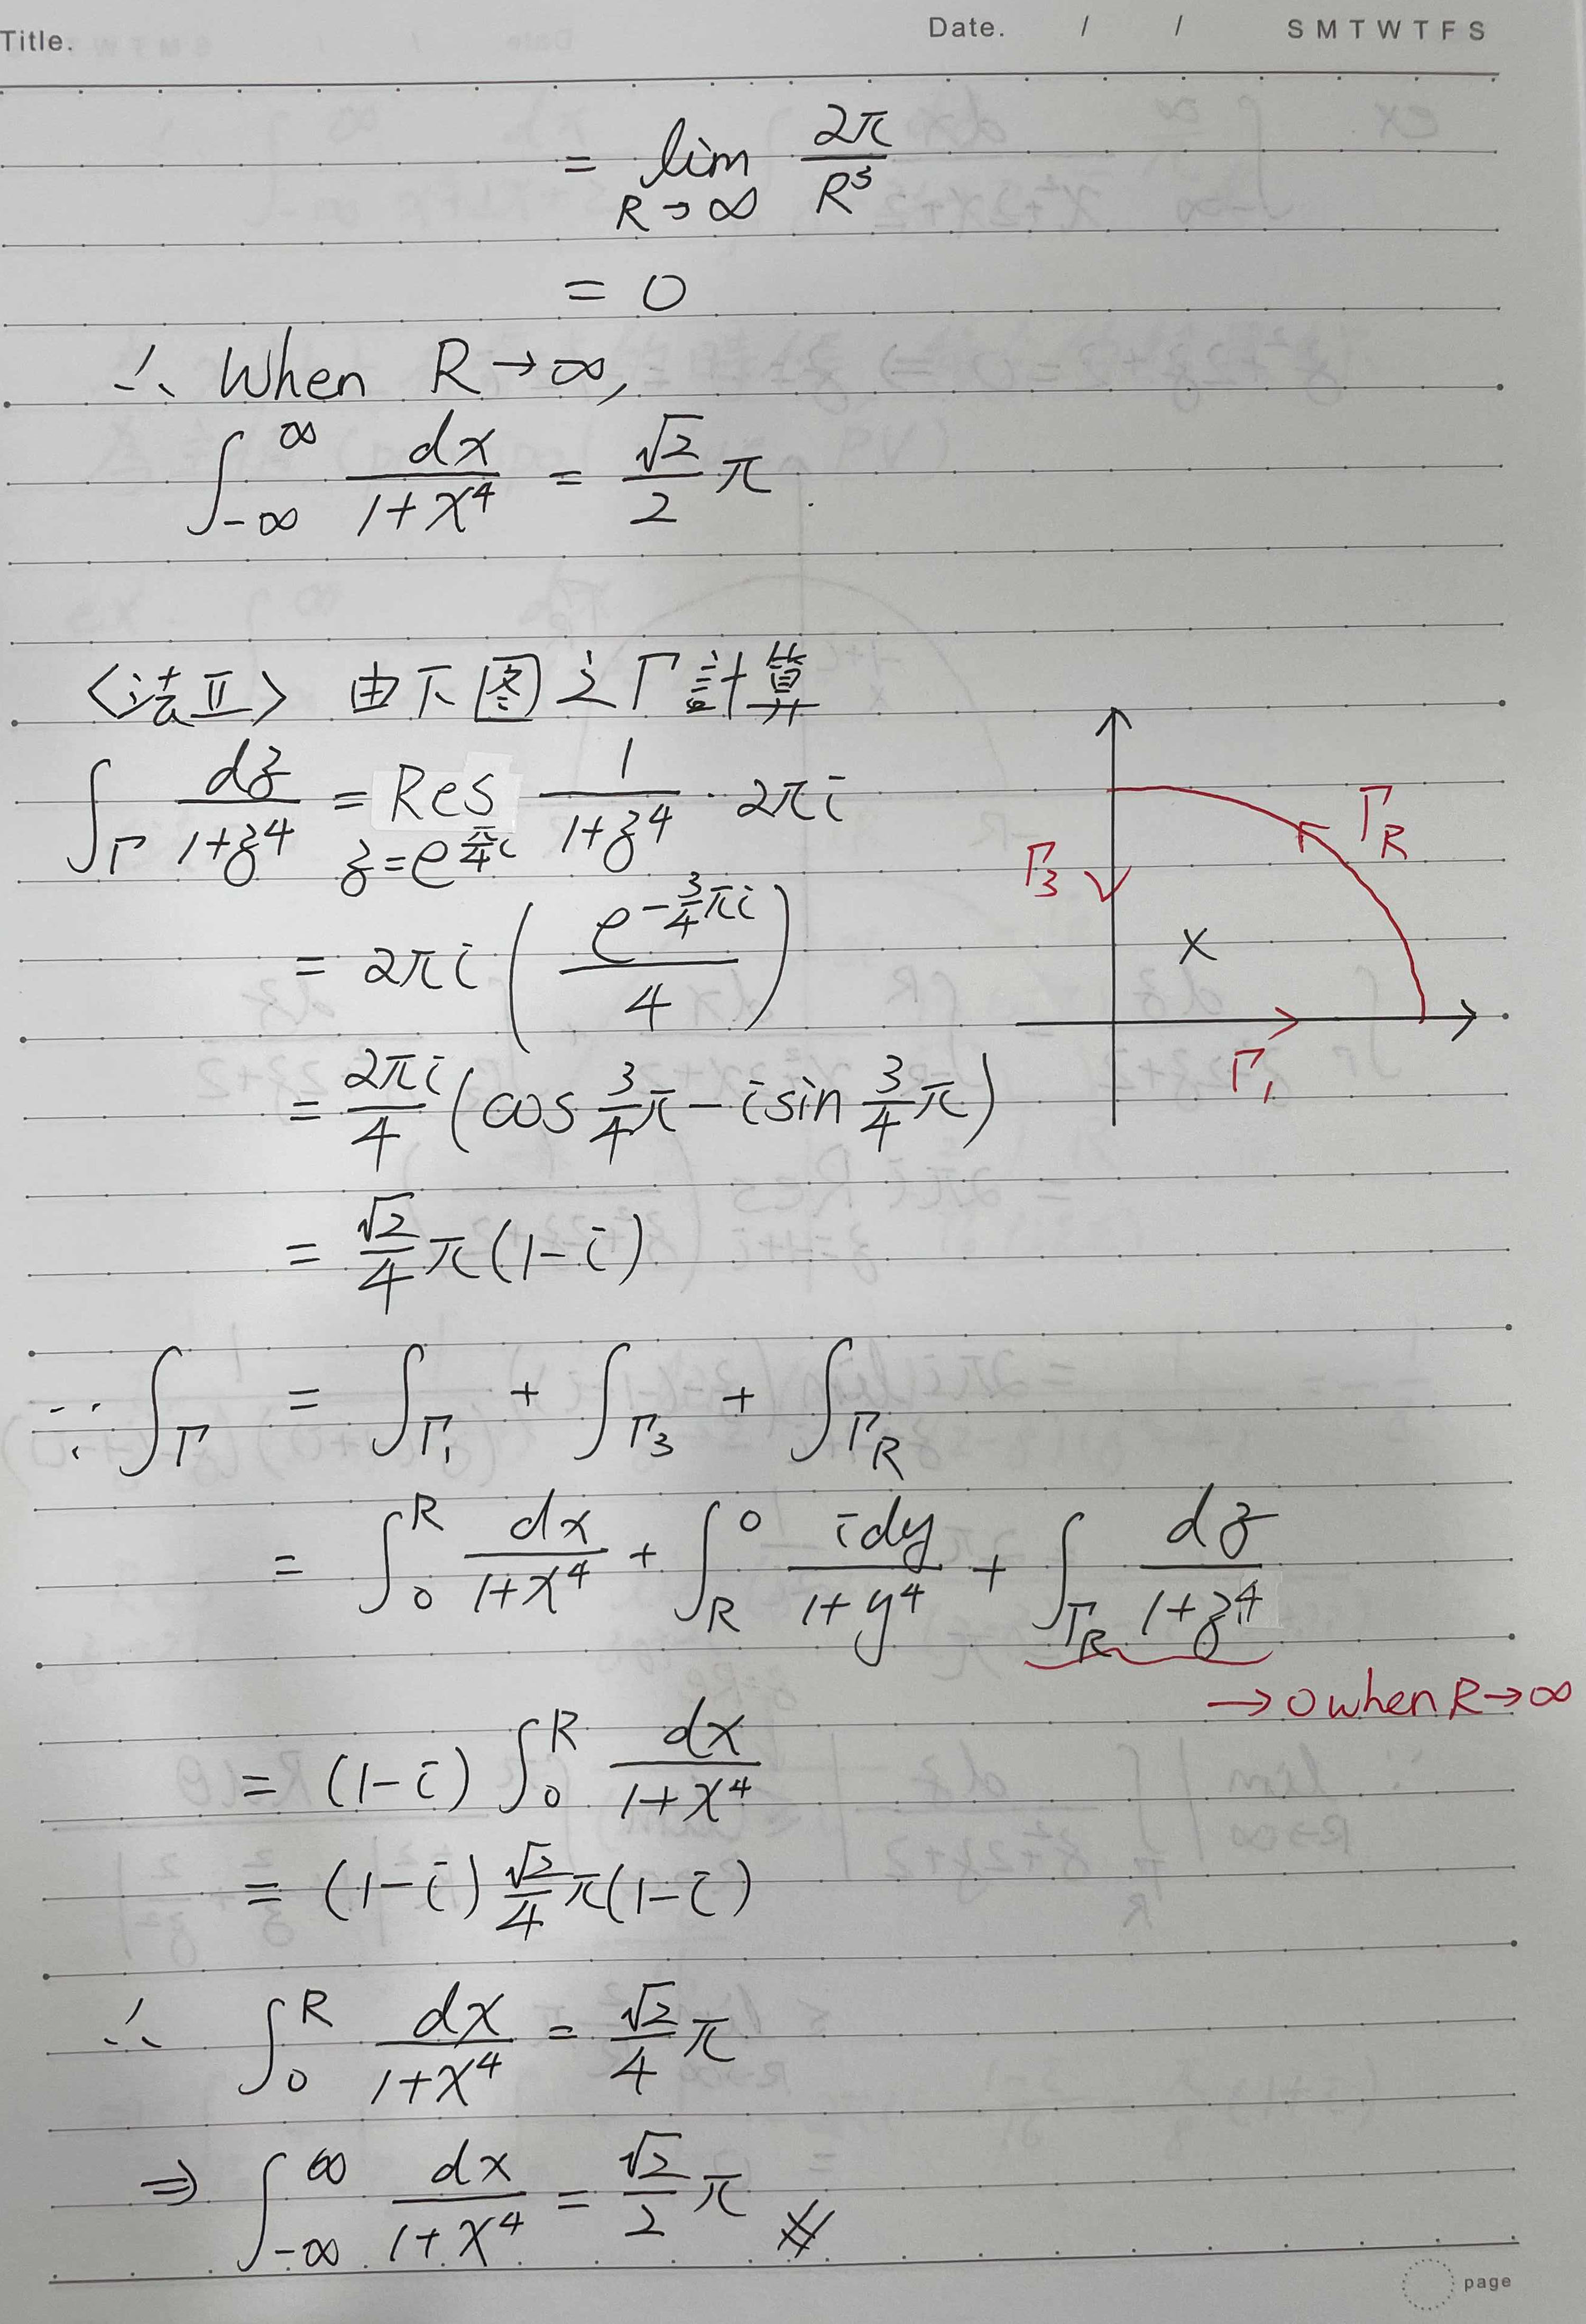 Title.
Date. / / S M T W T F S
= lim_{R→∞} 2π/R³
= 0
∴ When R→∞,
∫_{-∞}^{∞} dx/(1+x⁴) = √2/2 π.
〈法Ⅱ〉 由下図之Γ計算
∫_Γ dz/(1+z⁴) = Res_{z=e^{π/4 i}} 1/(1+z⁴) · 2πi
= 2πi (e^{-3/4 πi}/4)
= 2πi/4 (cos 3/4 π - i sin 3/4 π)
= √2/4 π(1-i)
Γ_R
Γ₃
×
Γ₁
∵ ∫_Γ = ∫_{Γ₁} + ∫_{Γ₃} + ∫_{Γ_R}
= ∫_0^R dx/(1+x⁴) + ∫_R^0 idy/(1+y⁴) + ∫_{Γ_R} dz/(1+z⁴)
→ 0 when R→∞
= (1-i) ∫_0^R dx/(1+x⁴)
= (1-i) √2/4 π(1-i)
∴ ∫_0^R dx/(1+x⁴) = √2/4 π
⇒ ∫_{-∞}^{∞} dx/(1+x⁴) = √2/2 π #
page